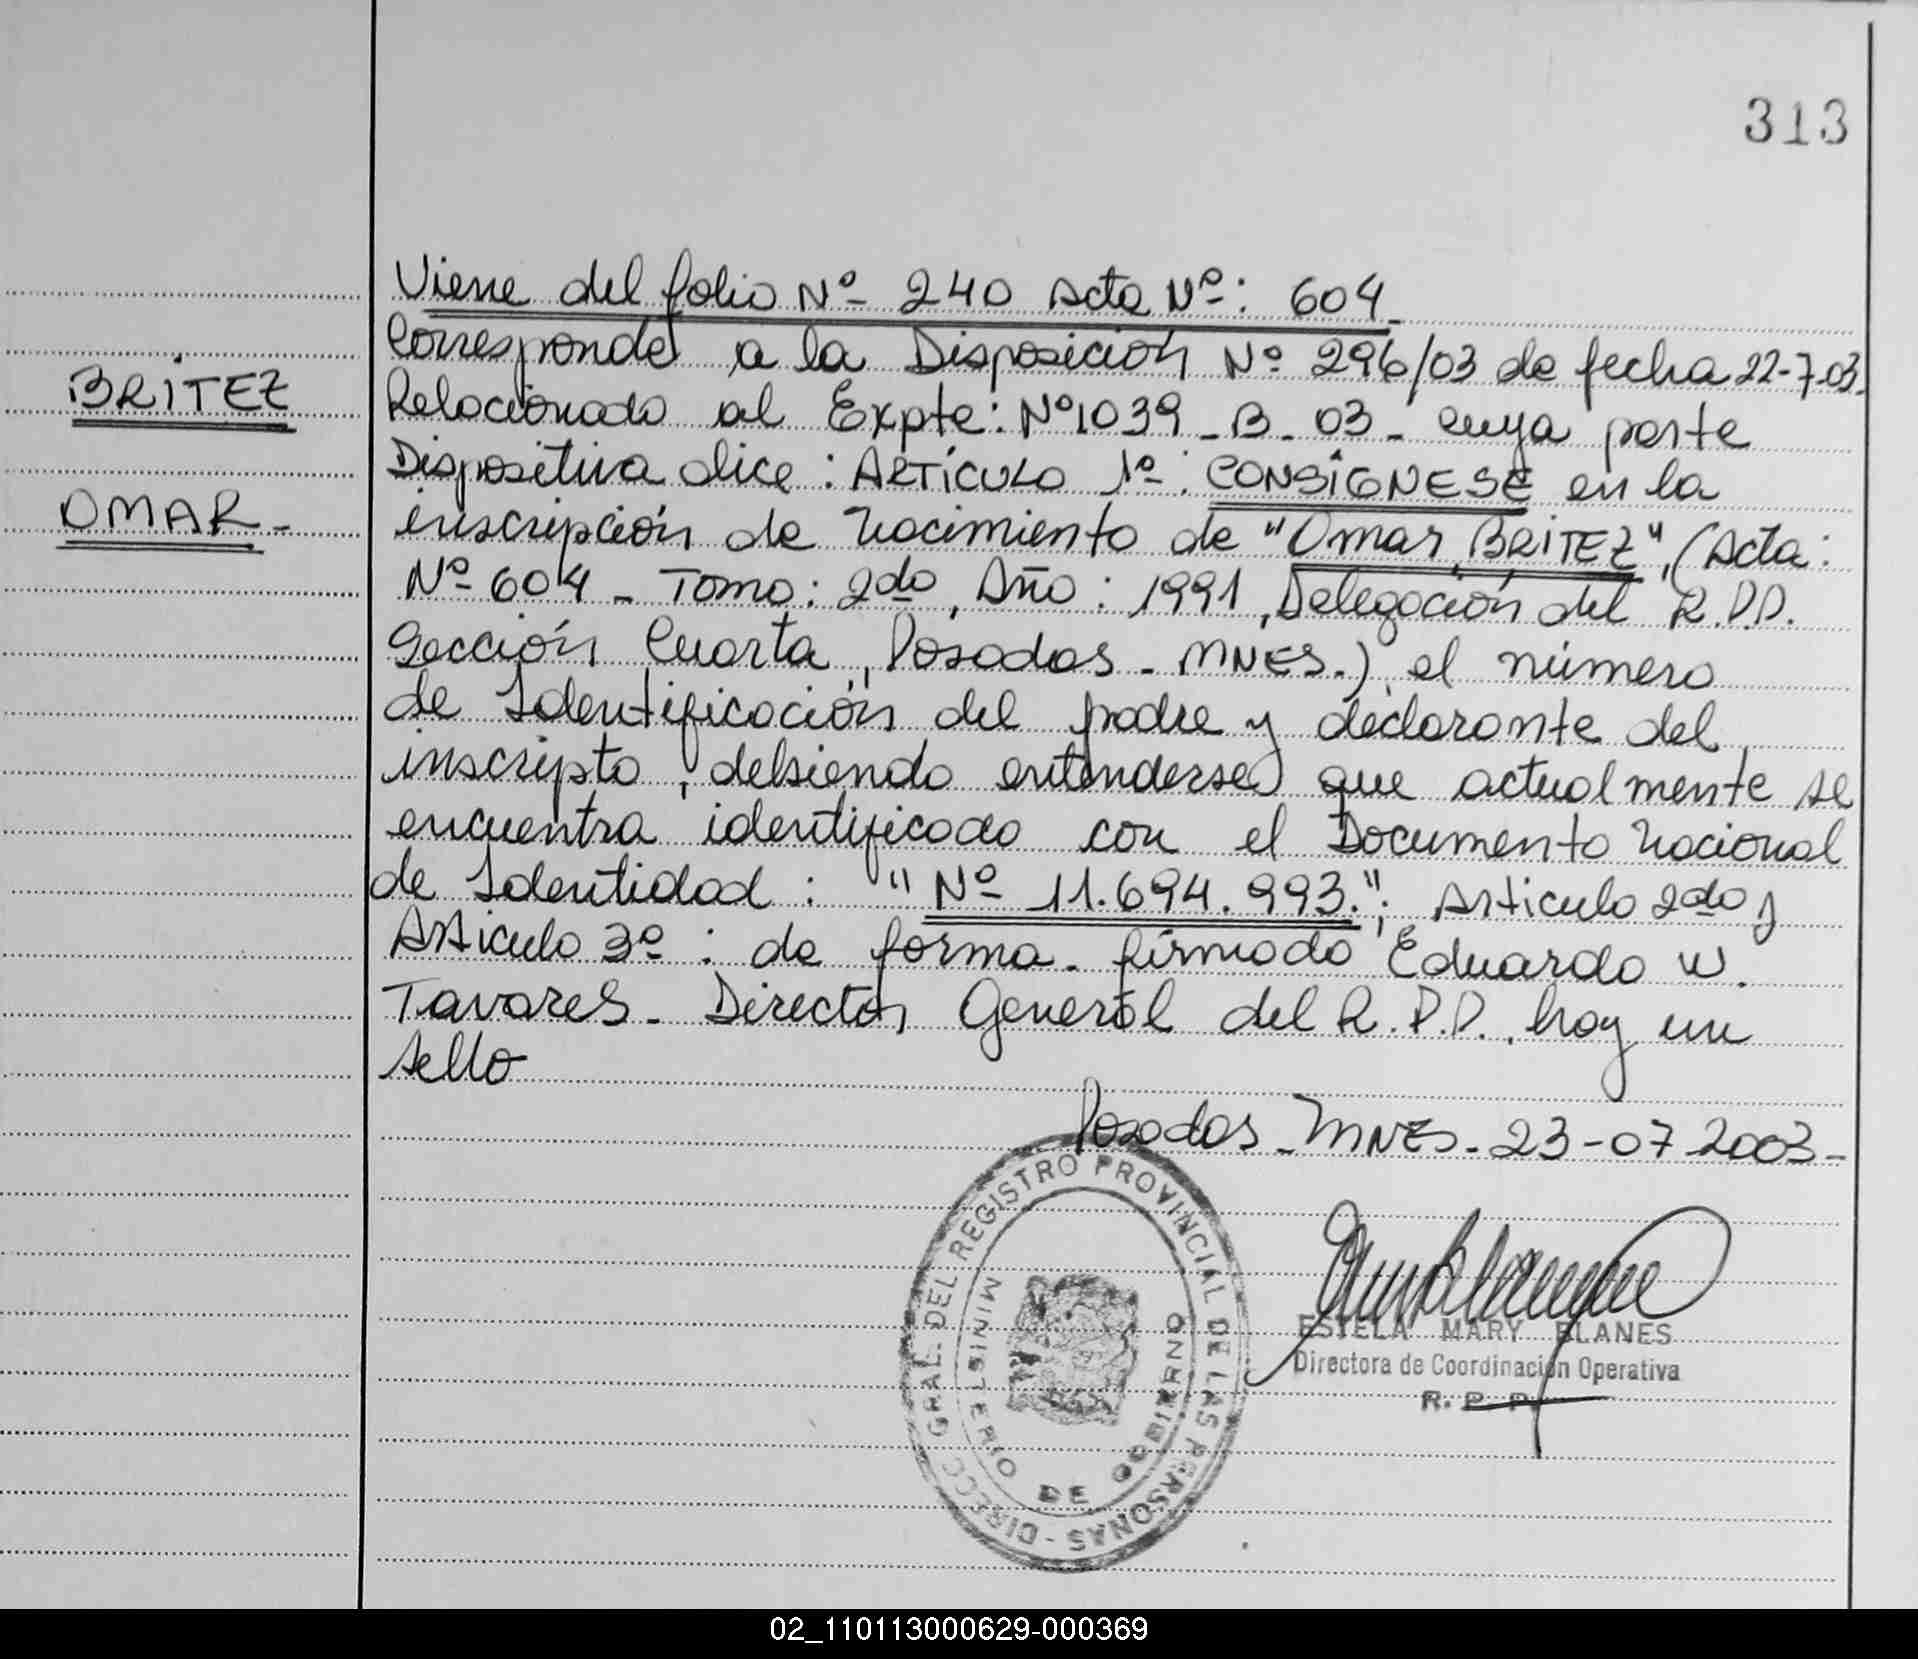 313
Viene del folio Nº 240 Acta Nº: 604_
Corresponde a la Disposición Nº 296/03 de fecha 22-7-03.
BRITEZ
Relacionado al Expte: Nº1039_B_03_ cuya parte
Dispositiva dice: ARTÍCULO 1º: CONSÍGNESE en la
OMAR_
inscripción de nacimiento de "Omar BRITEZ", (Acta:
Nº 604 _ Tomo: 2do, Año: 1991, Delegación del R.P.P.
Sección Cuarta, Posadas_MNES.) el número
de Identificación del padre y declarante del
inscripto, debiendo entenderse que actualmente se
encuentra identificado con el Documento Nacional
de Identidad: "Nº 11.694.993."; Artículo 2do y
Artículo 3º: de forma_ firmado Eduardo W.
Tavares_ Director General del R.P.P., hay un
sello
Posadas_MNES_23-07-2003_
DIRECC. GRAL. DEL REGISTRO PROVINCIAL DE LAS PERSONAS -
MINISTERIO DE GOBIERNO
ESTELA MARY BLANES
Directora de Coordinación Operativa
R. P. P.
02_110113000629-000369